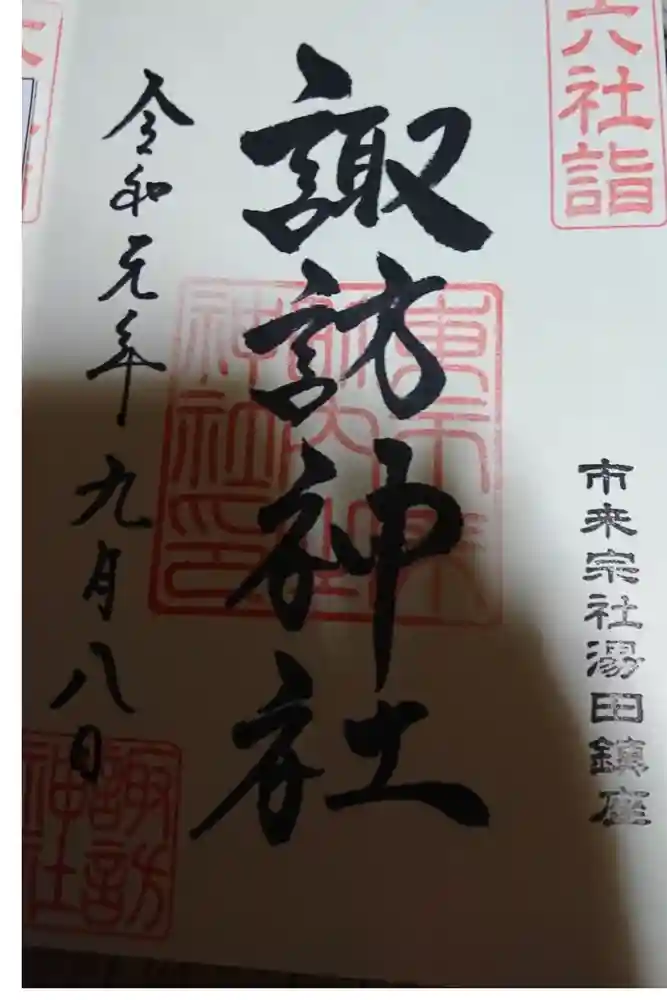 六社詣
市来宗社湯田鎮座
諏訪神社
令和元年九月八日
諏訪神社